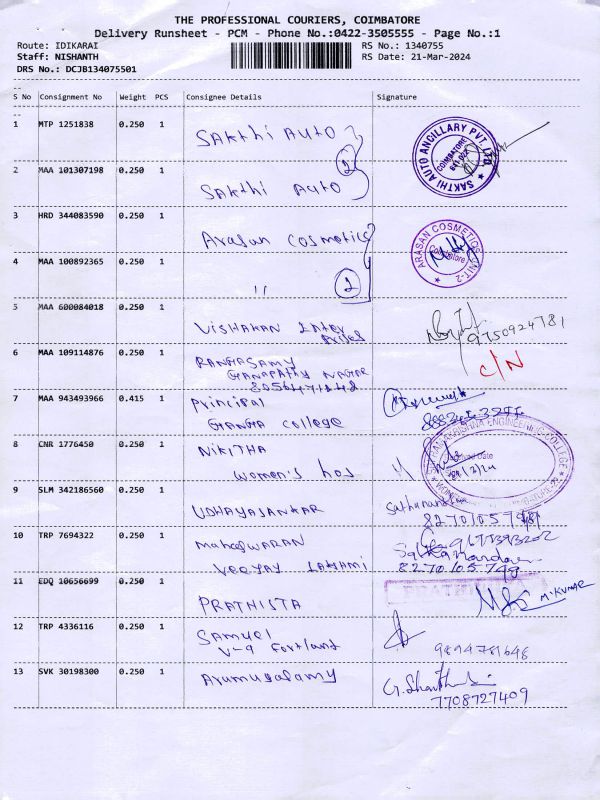 THE PROFESSIONAL COURIERS, COIMBATORE
Delivery Runsheet - PCM - Phone No.:0422-3505555 - Page No.:1
Route: IDIKARAI
RS No.: 1340755
Staff: NISHANTH
RS Date: 21-Mar-2024
DRS No.: DCJB134075501
S No Consignment No Weight PCS Consignee Details Signature
1 MTP 1251838 0.250 1 SAKthi AUTO
SAKTHI AUTO ANCILLARY PVT. LTD.
COIMBATORE
2 MAA 101307198 0.250 1 SAKthi AUTO
2
3 HRD 344083590 0.250 1 Arasan cosmetics
ARASAN COSMETICS UNIT-2
4 MAA 100892365 0.250 1 "
2
5 MAA 600084018 0.250 1 VISHAKAN Enter
Prises
9750924781
6 MAA 109114876 0.250 1 RANGASAMY
GANAPATHY NAGAR
C/N
7 MAA 943493966 0.415 1 Principal
GANGA college
8 CNR 1776450 0.250 1 NIKITHA
women's hos
ENGINEERING COLLEGE
Date
9 SLM 342186560 0.250 1 UDHAYASANKAR
10 TRP 7694322 0.250 1 maheswaran
VEEYAY
11 EDQ 10656699 0.250 1 PRATHISTA
M.KUMAR
12 TRP 4336116 0.250 1 Samuel
V-9 Fortland
9894781648
13 SVK 30198300 0.250 1 Arumugasamy
7708727409